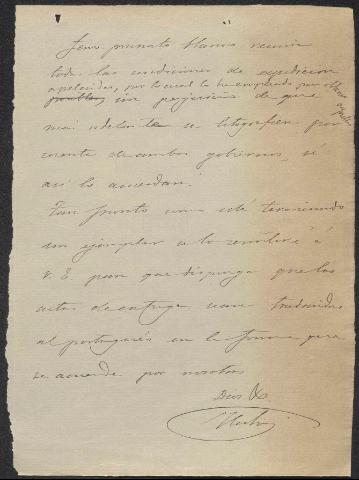 todas las condiciones de expedicion
apetecidas, por lo cual la he empleado por ahora
posibles sin perjuicio de que
mas adelante se litografien por
cuenta de ambos gobiernos, si
asi lo acuerdan.
Tan pronto como esté terminado
un ejemplar se lo remitiré á
V. E. para que disponga que las
actas de entrega sean traducidas
al portugués en la forma que
se acuerde por nosotros
Dios &